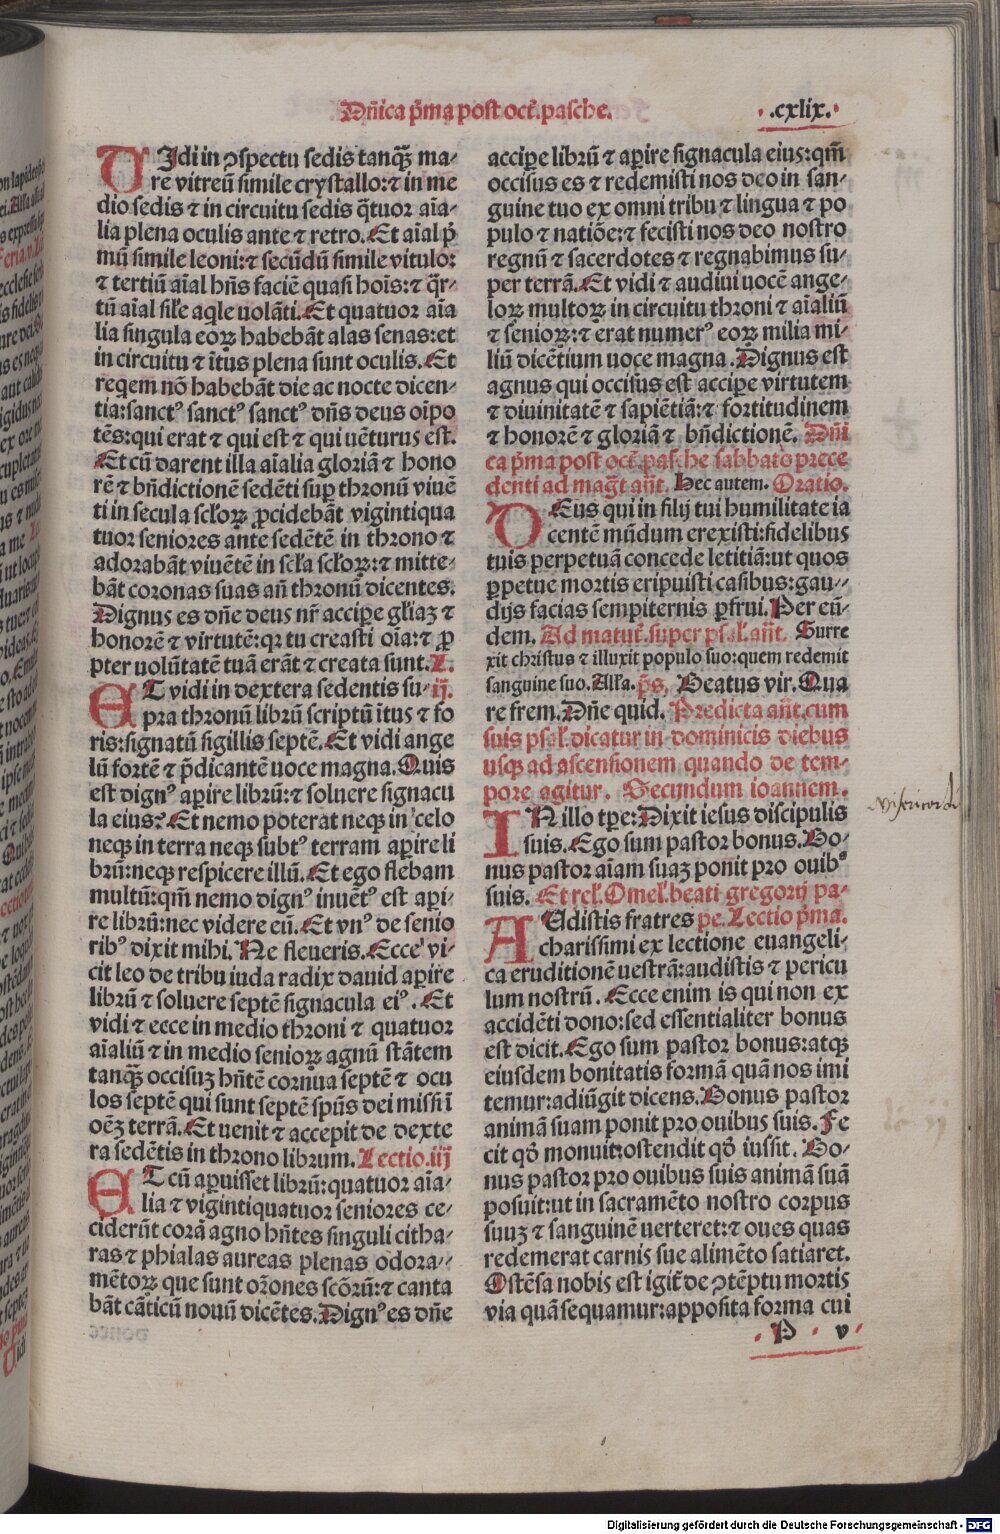 Dn̄ica p̄ma post oct̄. pasche.
.cxlix.
VIdi in ꝯspectu sedis tanqꝫ̄ ma-
re vitreū simile crystallo: ⁊ in me
dio sedis ⁊ in circuitu sedis q̄tuor aīa-
lia plena oculis ante ⁊ retro. Et aīal p̄
mū simile leoni: ⁊ secūdū simile vitulo:
⁊ tertiū aīal hn̄s faciē quasi hoīs: ⁊ q̄r-
tū aīal sil'e aq̄le uolāti. Et quatuor aīa
lia singula eoꝝ habebāt alas senas: et
in circuitu ⁊ ītus plena sunt oculis. Et
reqem nō habebāt die ac nocte dicen-
tia: sanctꝰ sanctꝰ sanctꝰ dn̄s deus oīpo
tēs: qui erat ⁊ qui est ⁊ qui uēturus est.
Et cū darent illa aīalia gloriā ⁊ hono
rē ⁊ bn̄dictionē sedēti suꝑ thronū viuē
ti in secula scl'oꝝ ꝓcidebāt vigintiqua
tuor seniores ante sedētē in throno ⁊
adorabāt viuētē in scl'a scl'oꝝ: ⁊ mitte-
bāt coronas suas an̄ thronū dicentes.
Dignus es dn̄e deus nr̄ accipe gl'iaꝫ ⁊
honorē ⁊ virtutē: qꝛ tu creasti oīa: ⁊ ꝓ
pter uolūtatē tuā erāt ⁊ creata sunt. L.
ET vidi in dextera sedentis su- ij.
pra thronū librū scriptū ītus ⁊ fo
ris: signatū sigillis septē. Et vidi ange
lū fortē ⁊ p̄dicantē uoce magna. Quis
est dignꝰ aꝑire librū: ⁊ soluere signacu
la eius? Et nemo poterat neqꝫ in celo
neqꝫ in terra neqꝫ subtꝰ terram aꝑire li
brū: neqꝫ respicere illū. Et ego flebam
multū: qm̄ nemo dignꝰ inuētꝰ est aꝑi-
re librū: nec videre eū. Et vnꝰ de senio
ribꝰ dixit mihi. Ne fleueris. Ecce vi-
cit leo de tribu iuda radix dauid aꝑire
librū ⁊ soluere septē signacula eiꝰ. Et
vidi ⁊ ecce in medio throni ⁊ quatuor
aīaliū ⁊ in medio senioꝝ agnū stātem
tanqꝫ̄ occisuꝫ hn̄tē cornua septē ⁊ ocu
los septē qui sunt septē sp̄us dei missi ī
oēꝫ terrā. Et uenit ⁊ accepit de dexte
ra sedētis in throno librum. Lectio. iij
ET cū aꝑuisset librū: quatuor aīa-
lia ⁊ vigintiquatuor seniores ce-
ciderūt corā agno hn̄tes singuli citha-
ras ⁊ phialas aureas plenas odora-
mētoꝝ que sunt or̄ones scōrū: ⁊ canta
bāt cāticū nouū dicētes. Dignꝰ es dn̄e
accipe librū ⁊ aꝑire signacula eius: qm̄
occisus es ⁊ redemisti nos deo in san-
guine tuo ex omni tribu ⁊ lingua ⁊ po
pulo ⁊ natiōe: ⁊ fecisti nos deo nostro
regnū ⁊ sacerdotes ⁊ regnabimus su-
per terrā. Et vidi ⁊ audiui uocē ange-
loꝝ multoꝝ in circuitu throni ⁊ aīaliū
⁊ senioꝝ: ⁊ erat numerꝰ eoꝝ milia mi-
liū dicētium uoce magna. Dignus est
agnus qui occisus est accipe virtutem
⁊ diuinitatē ⁊ sapiētiā: ⁊ fortitudinem
⁊ honorē ⁊ gloriā ⁊ bn̄dictionē. Dn̄i
ca p̄ma post oct̄. pasche sabbato prece
denti ad maḡt an̄t. Hec autem. Oratio.
DEus qui in filij tui humilitate ia
centē mūdum erexisti: fidelibus
tuis perpetuā concede letitiā: ut quos
ꝑpetue mortis eripuisti casibus: gau-
dijs facias sempiternis ꝑfrui. Per eū-
dem. Ad matut̄. super psal̄. an̄t. Surre
xit christus ⁊ illuxit populo suo: quem redemit
sanguine suo. All'a. p̄s. Beatus vir. Qua
re frem. Dn̄e quid. Predicta an̄t. cum
suis psal̄. dicatur in dominicis diebus
usqꝫ ad ascensionem quando de tem-
pore agitur. Secundum ioannem.
IN illo tp̄e: Dixit iesus discipulis
suis. Ego sum pastor bonus. Bo-
nus pastor aīam suaꝫ ponit pro ouibꝰ
suis. Et rel'. Omel'. beati gregorij pa-
AUdistis fratres pe. Lectio p̄ma.
charissimi ex lectione euangeli-
ca eruditionē uestrā: audistis ⁊ pericu
lum nostrū. Ecce enim is qui non ex
accidēti dono: sed essentialiter bonus
est dicit. Ego sum pastor bonus: atqꝫ
eiusdem bonitatis formā quā nos imi
temur: adiūgit dicens. Bonus pastor
animā suam ponit pro ouibus suis. Fe
cit qd̄ monuit: ostendit qd̄ iussit. Bo-
nus pastor pro ouibus suis animā suā
posuit: ut in sacramēto nostro corpus
suuꝫ ⁊ sanguinē uerteret: ⁊ oues quas
redemerat carnis sue alimēto satiaret.
Ostēsa nobis est igit̄ de ꝯtēptu mortis
via quā sequamur: apposita forma cui
P v
Digitalisierung gefördert durch die Deutsche Forschungsgemeinschaft - DFG